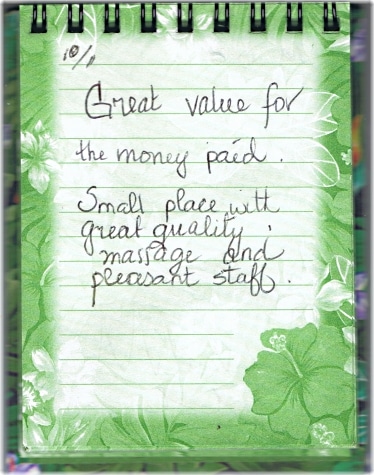 10/1
Great value for
the money paid.
Small place with
great quality
massage and
pleasant staff.